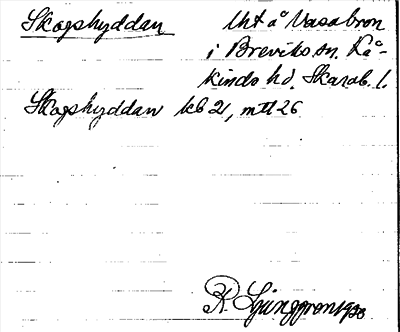 Skogshyddan lht å Vasabron
i Breviks sn. Kå-
kinds hd. Skarab. l.
Skogshyddan kb 21, mtl 26
R Ljunggren 1928